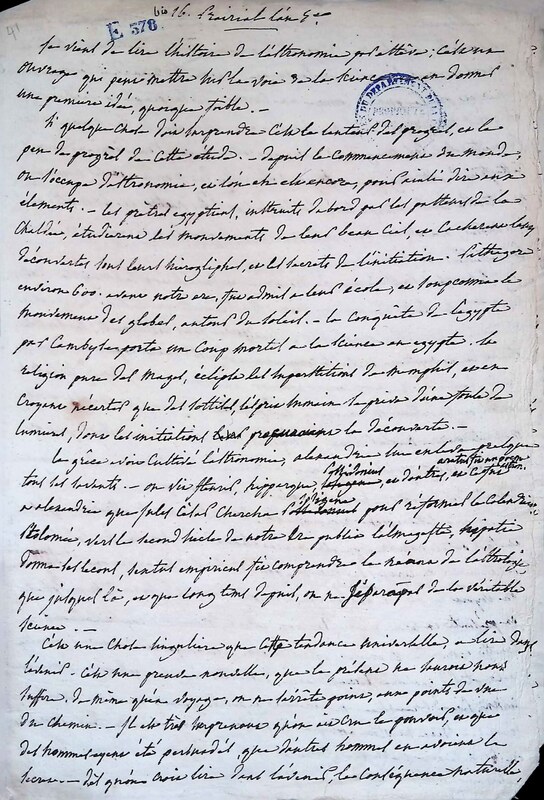 41
E 378 bis 16. Prairial l'an 9e
Je viens de lire l'histoire de l'astronomie par ; c'est un
ouvrage qui peut mettre sur la voie de la science en donner
une première idée, quoique faible. —
Si quelque chose doit surprendre c'est la lenteur des progrès, et le
peu de progrès de cette étude. — depuis le commencement du monde,
on s'occupa d'astronomie, et l'on en est encore, pour ainsi dire aux
élements. — les prêtres egyptiens, instruits d'abord par les pasteurs de la
Chaldée, étudierent les mouvements de leur beau ciel, et cacherent leurs
découvertes sous leurs hieroglyphes, et les secrets de l'initiation. Pithagore
environ 600. avant notre ere, fut admis a leur école, et soupconna le
mouvement des globes, autour du soleil. — la conquête de l'egypte
par Cambyse porta un coup mortel a la science en egypte. la
religion pure des mages, éclipsa les superstitions de memphis, et en
croyant n'écarter que des sottises, l'esprit humain se priva d'une foule de
lumieres, dont les initiations la découverte. —
la grèce avoit cultivé l'astronomie, alexandre lui enleva presque
tous les savants. — on vit fleurir, hipparque, possidonius et d'autres, et
a alexandrie que Jules César chercha sosigène pour réformer le calendrier
Ptolomée, vers le second siecle de notre ere publia l'almageste, hypatie
donna ses lecons, sextus empiricus fit comprendre le néant de l'astrologie
que jusques là, et que longtems depuis, on ne sépara pas de la véritable
science. —
C'est une chose singulière que cette tendance universelle, a lire dans
l'avenir. C'est une preuve nouvelle, que le présent ne sauroit nous
suffire. de même qu'en voyage, on ne s'arrête point, aux points de vue
du chemin. — Il est très surprenant qu'on ait cru le pouvoir, et que
des hommes ayent été persuadés, que d'autres hommes en avoient le
secret. — dès qu'on croit lire dans l'avenir, la conséquence naturelle,